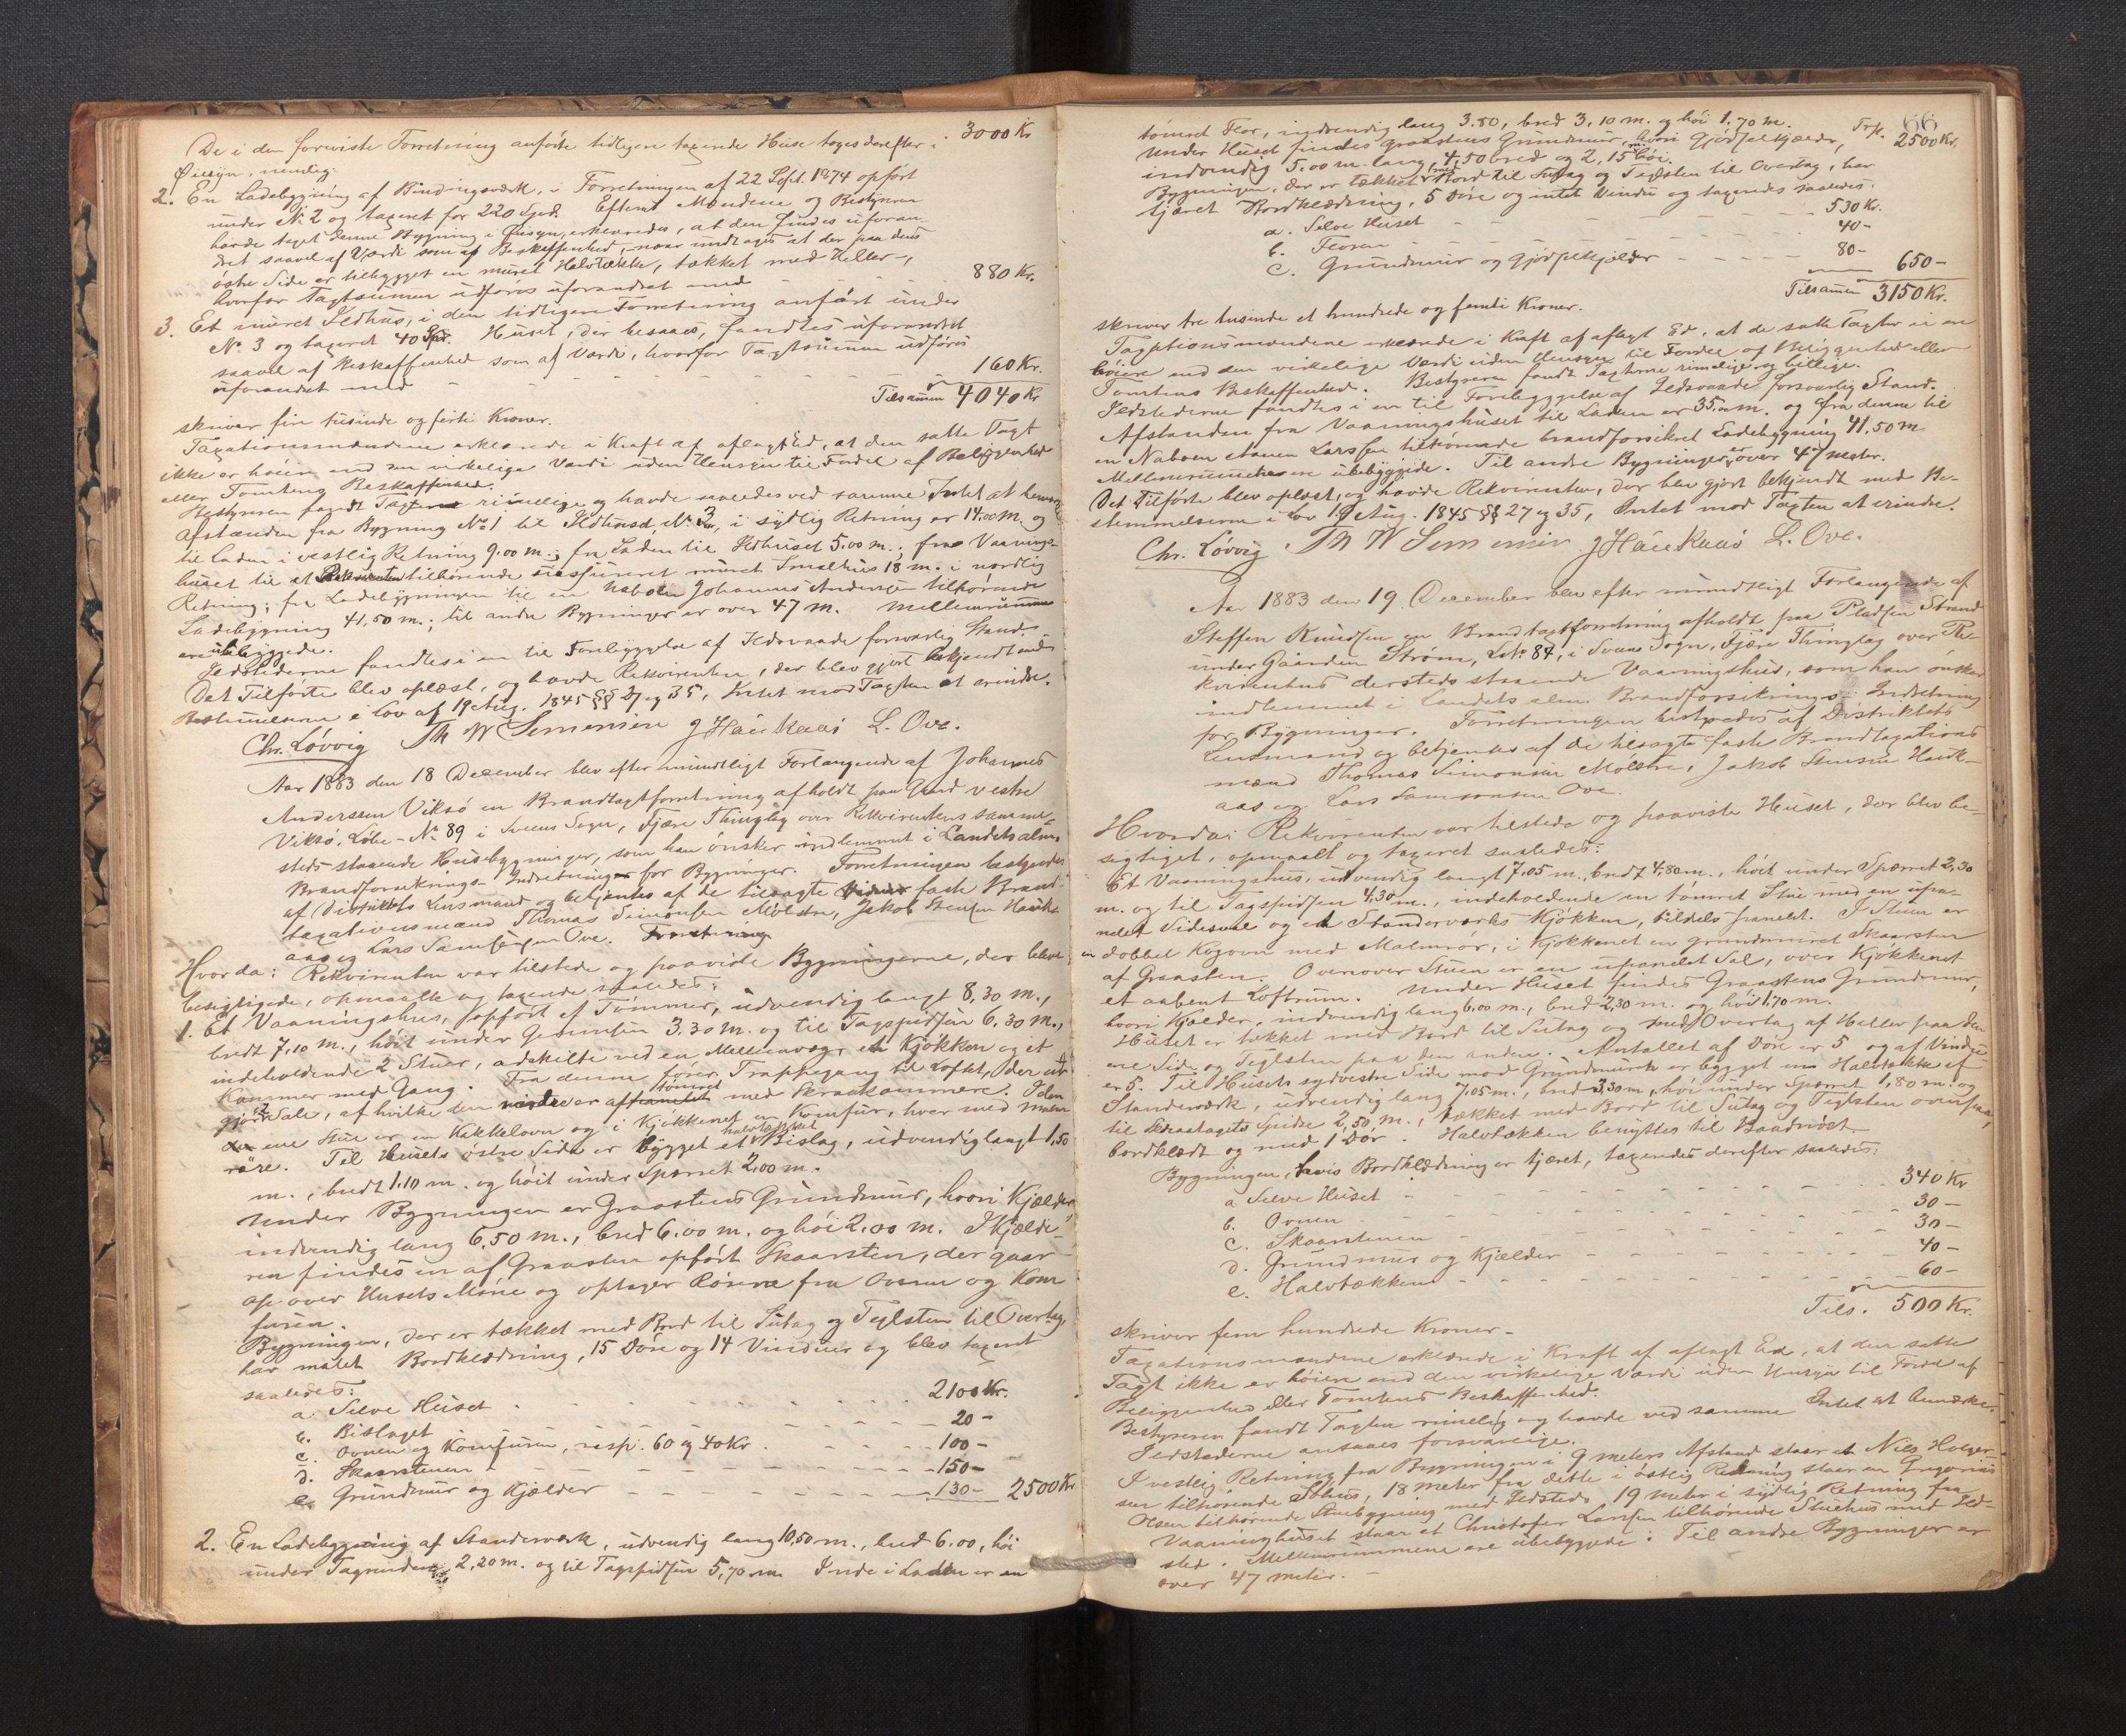 De i den foreviste Forretning anförte tidligere taxerede Huse toges derefter i 3000 Kr
Öiesyn, nemlig:
2. En Ladebygning af Bindingsværk, i Forretningen af 22 Sept. 1874 opfört
under No 2 og taxeret for 220 Spd. Efterat Mændene og Bestyreren
havde taget denne Bygning i Öiesyn, erklæredes, at den findes uforan-
dret saavel af Værdi som af Beskaffenhed, naar undtages at der paa dens
östre Side er tilbygget en muret Halvtække, tækket med Heller,
hvorfor Taxtsummen udföres uforandret med 880 Kr.
3. Et muret Ildhus, i den tidligere Forretning anfört under
No. 3 og taxeret 40 Spd. Huset, der besaaes, fandtes uforandret
saavel af Beskaffenhed som af Værdi, hvorfor Taxtsummen udföres
uforandret med 160 Kr.
Tilsammen 4040 Kr
skriver fire tusinde og forti Kroner.
Taxationsmændene erklærede i Kraft af aflagt Ed, at den satte Taxt
ikke er höiere end den virkelige Værdi uden Hensyn til Fordel af Beliggenhed
eller Tomtens Beskaffenhed.
Bestyreren fandt Taxterne rimelige og havde saaledes ved samme Intet at bemærke
Afstanden fra Bygning No 1 til Ildhuset No. 3, i sydlig Retning er 14,00 M. og
til Laden i vestlig Retning 9,00 m.; fra Laden til Ildhuset 5,00 m.; fra Vaanings-
huset til et Rekvirenten tilhörende muret Smalehus 18 m. i nordlig
Retning; fra Ladebygningen til en Naboen Johannes Andersen tilhörende
Ladebygning 41,50 m.; til andre Bygninger er over 47 m. Mellemrummene
ere ubebyggede.
Ildstederne fandtes i en til Forebyggelse af Ildsvaade forsvarlig Stand.
Det Tilförte blev oplæst, og havde Rekvirenten, der blev gjort bekjendt med
Bestemmelserne i Lov af 19 Aug. 1845 §§ 27 og 35, Intet mod Taxten at erindre.
Chr. Lövvig Th W Simonsen J Haukaas L. Ove.
Aar 1883 den 18 December blev efter mundtligt Forlangende af Johannes
Anderssen Viksö en Brandtaxtforretning afholdt paa Gaard vestre
Viksö, Löbe-No 89 i Sveens Sogn, Fjære Thinglag over Rekvirentens samme-
steds staaende Husebygninger, som han önsker indlemmet i Landets alm.
Brandforsikrings-Indretninger for Bygninger. Forretningen bestyredes
af Distriktets Lensmand og betjentes af de tilsagte faste Brand-
taxationsmænd Thomas Simonsen Mölstre, Jakob Stensen Hauk-
aas og Lars Samsonsen Ove.
Hvorda: Rekvirenten var tilstede og paaviste Bygningerne, der bleve
besigtigede, opmaalte og taxerede saaledes:
1. Et Vaaningshus, opfört af Tömmer, udvendig langt 8,30 m.,
bredt 7,10 m., höit under Gesimsen 3,30 m. og til Tagspidsen 6,30 m.,
indeholdende 2 Stuer, adskilte ved en Mellemvæg, et Kjökken og et
Kammer med Gang. Fra denne förer Trappegang til Loftet, der ud-
gjör 2 Sale, af hvilke den er tömret med Skraakammere. I den
ene Stue er en Kakkelovn og i Kjökkenet en Komfur, hver med Malm
röre. Til Husets östre Side er bygget et halvtækket Bislag, udvendig langt 1,50
m., bredt 1,10 m. og höit under Sperret 2,00 m.
Under Bygningen er Graastens Grundmur, hvori Kjælder,
indvendig lang 6,50 m., bred 6,00 m. og höi 2,00 m. I Kjælde-
ren findes en af Graasten opfört Skaarsten, der gaar
op over Husets Möne og optager Rörene fra Ovnen og Kom
furen.
Bygningen, der er tækket med Bord til Sutag og Teglsten til Overtag,
har malet Bordklædning, 15 Döre og 14 Vinduer og blev taxeret
saaledes:
a. Selve Huset 2100 Kr.
b. Bislaget 20 –
c. Ovnen og Komfuren, resp. 60 og 40 Kr. 100 –
d. Skaarstenen 150 –
e. Grundmur og Kjælder 130 – 2500 Kr
2. En Ladebygning af Standerværk, udvendig lang 10,50 m., bred 6,00, höi
under Tagrenden 2,20 m. og til Tagspidsen 5,70 m. Inde i Laden er en
66
tömret Flor, indvendig lang 3.50, bred 3,10 m. og höi 1,70 m. Trf. 2500 Kr.
Under Huset findes Graastens Grundmur, hvori Gjödselkjælder,
indvendig 5,00 m. lang, 4,50 bred og 2,15 m. höi.
Bygningen, der er tækket med Bord til Sutag og Teglsten til Overtag, har
tjæret Bordklædning, 5 Döre og intet Vindu og taxeredes saaledes:
a. Selve Huset 530 Kr.
b. Floren 40 –
c. Grundmur og Gjödselkjælder 80 – 650 –
Tilsammen 3150 Kr.
skriver tre tusinde et hundrede og femti Kroner.
Taxtionsmændene erklærede i Kraft af aflagt Ed, at de satte Taxter ei ere
höiere end den virkelige Værdi uden Hensyn til Fordel af Beliggenhed eller
Tomtens Beskaffenhed. Bestyreren fandt Taxterne rimelige og billige.
Ildstederne fandtes i en til Forebyggelse af Ildsvaade forsvarlig Stand.
Afstanden fra Vaaningshuset til Laden er 35,00 m. og fra denne til
en Naboen Larssen tilhörende brandforsikret Ladebygning 41.50 m
Mellemrummene ere ubebyggede. Til andre Bygninger er over 47 meter.
Det Tilförte blev oplæst, og havde Rekvirenten, der blev gjort bekjendt med Be-
stemmelserne i Lov 19 Aug. 1845 §§ 27 og 35, Intet mod Taxten at erindre.
Chr. Lövvig Th W Simonsen J Haukaas L. Ove.
Aar 1883 den 19 December blev efter mundtligt Forlangende af
Steffen Knudsen en Brandtaxtforretning afholdt paa Pladsen Strand
under Gaarden Ström, L.No 84, i Sveens Sogn, Fjære Thinglag over Re-
kvirentens dersteds staaende Vaaningshus, som han önsker
indlemmet i Landets alm. Brandforsikrings-Indretning
for Bygninger. Forretningen bestyredes af Distriktets
Lensmand og betjentes af de tilsagte faste Brandtaxations
mænd Thomas Simonsen Mölstre, Jakob Stensen Hauk-
aas og Lars Samsonsen Ove.
Hvorda: Rekvirenten var tilstede og paaviste Huset, der blev be-
sigtiget, opmaalt og taxeret saaledes:
Et Vaaningshus, udvendig langt 7,05 m., bredt 4,80 m., höit under Sperret 2,30
m. og til Tagspidsen 4,30 m., indeholdende en tömret Stue med en upa-
nelet Sidesval og et Standerværks Kjökken, tildels panelet. I Stuen er
en dobbel Kogovn med Malmrör, i Kjökkenet en grundmuret Skaarsten
af Graasten. Ovenover Stuen er en upanelet Sal, over Kjökkenet
et aabent Loftrum. Under Huset findes Graastens Grundmur,
hvori Kjælder, indvendig lang 6,00 m., bred 2,30 m. og höi 1,70 m.
Huset er tækket med Bord til Sutag og med Overtag af Heller paa den
ene Side og Teglsten paa den anden. Antallet af Döre er 5 og af Vinduer
er 5. Til Husets sydvestre Side mod Grundmuren er bygget en Halvtække af
Standerværk, udvendig lang 7,05 m., bred 3,30 m., höi under Sperret 1,80 m. og
til Skraatagets Spidse 2,50 m., tækket med Bord til Sutag og Teglsten ovenpaa,
bordklædt og med 1 Dör. Halvtækken benyttes til Baadnöst.
Bygningen, hvis Bordklædning er tjæret, taxeredes derefter saaledes:
a Selve Huset 340 Kr
b. Ovnen 30 –
c. Skaarstenen 30 –
d. Grundmur og Kjælder 40 –
e. Halvtækken 60 –
Tils. 500 Kr.
skriver fem hundrede Kroner –
Taxationsmændene erklærede i Kraft af aflagt Ed, at den satte
Taxt ikke er höiere end den virkelige Værdi uden Hensyn til Fordel af
Beliggenhed eller Tomtens Beskaffenhed.
Bestyreren fandt Taxten rimelig og havde ved samme Intet at bemærke.
Ildstederne ansaaes forsvarlige.
I vestlig Retning fra Bygningen i 9 meters Afstand staar et Nils Holger-
sen tilhörende Söhus, 18 meter fra dette i östlig Retning staar en Gregorius
Olsen tilhörende Stuebygning med Ildsted. 19 meter i sydlig Retning fra
Vaaninghuset staar et Christofer Larssen tilhörende Stuehus med Ild-
sted. Mellemrummene ere ubebyggede. Til andre Bygninger er
over 47 meter. –